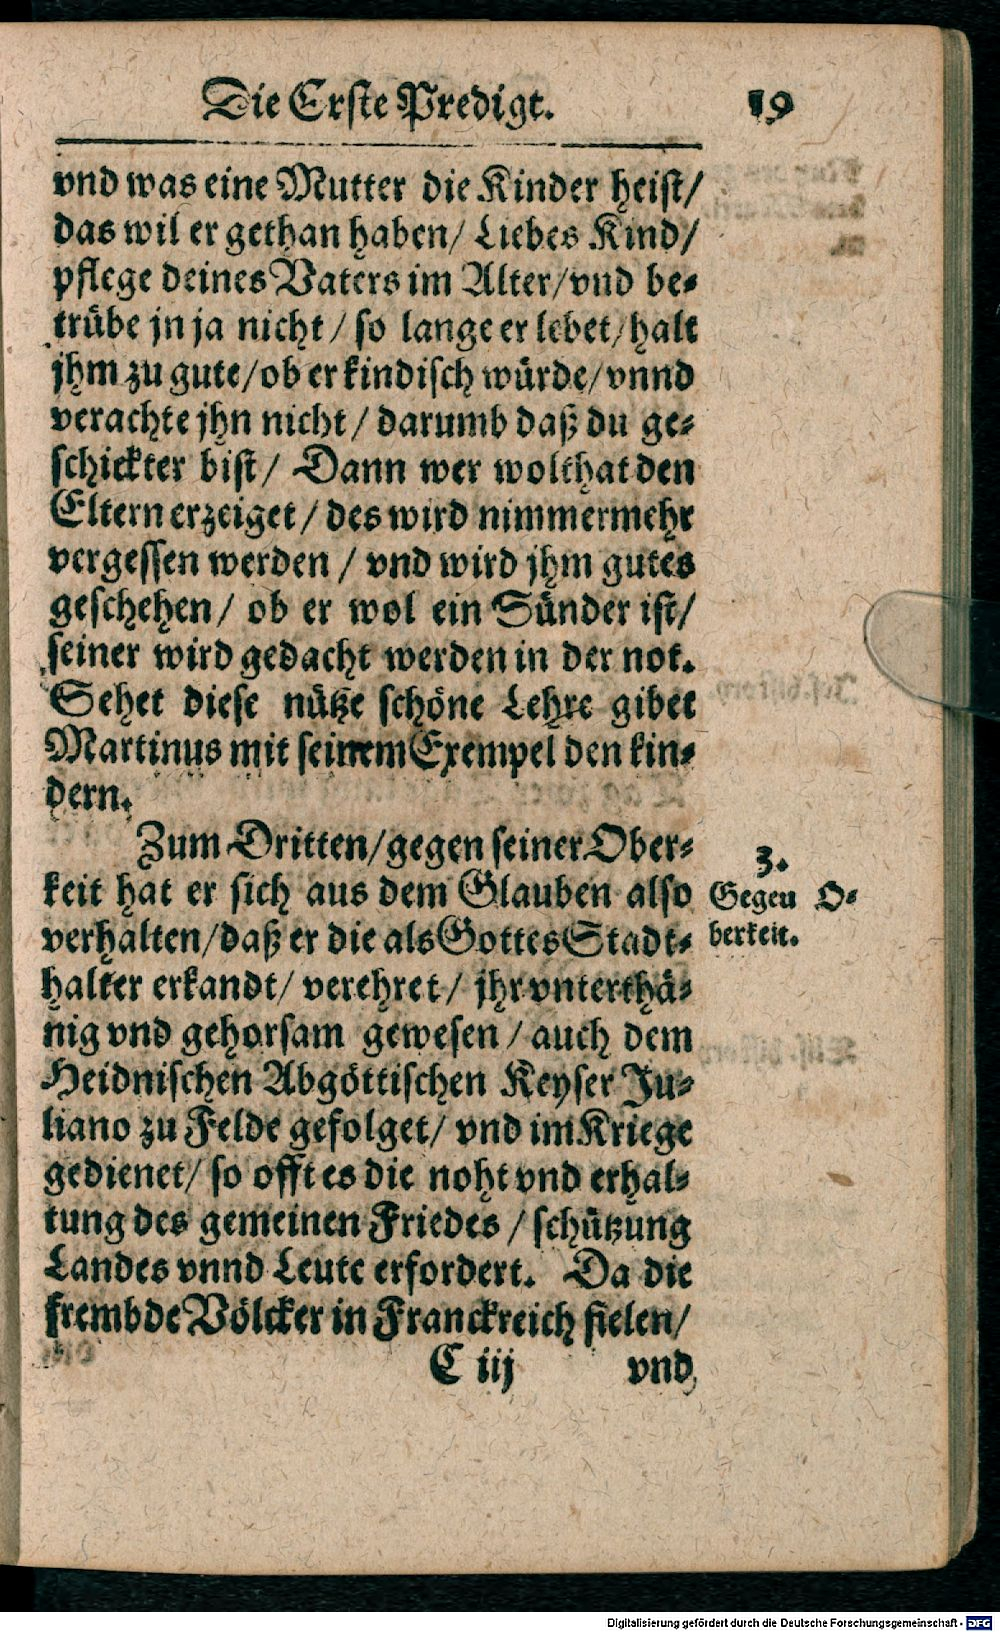 Die Erste Predigt. 19
vnd was eine Mutter die Kinder heist/
das wil er gethan haben/ Liebes Kind/
pflege deines Vaters im Alter/ vnd be-
trübe jn ja nicht/ so lange er lebet/ halt
jhm zu gute/ ob er kindisch würde/ vnnd
verachte jhn nicht/ darumb daß du ge-
schickter bist/ Dann wer wolthat den
Eltern erzeiget/ des wird nimmermehr
vergessen werden/ vnd wird jhm gutes
geschehen/ ob er wol ein Sünder ist/
seiner wird gedacht werden in der not.
Sehet diese nütze schöne Lehre gibet
Martinus mit seinem Exempel den kin-
dern.
Zum Dritten/ gegen seiner Ober-
keit hat er sich aus dem Glauben also
verhalten/ daß er die als Gottes Stadt-
halter erkandt/ verehret/ jhr vnterthä-
nig vnd gehorsam gewesen/ auch dem
Heidnischen Abgöttischen Keyser Ju-
liano zu Felde gefolget/ vnd im Kriege
gedienet/ so offt es die noht vnd erhal-
tung des gemeinen Friedes/ schützung
Landes vnnd Leute erfordert. Da die
frembde Völcker in Franckreich fielen/
C iij vnd
3.
Gegen O-
berkeit.
Digitalisierung gefördert durch die Deutsche Forschungsgemeinschaft - DFG